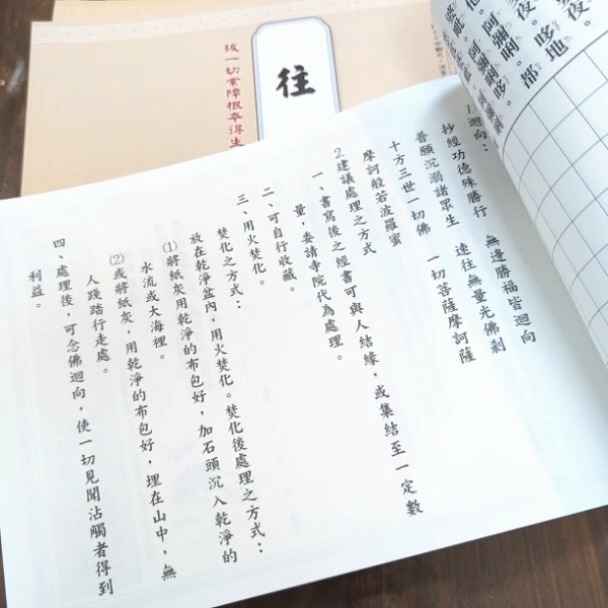 1.迴向：
抄經功德殊勝行　無邊勝福皆迴向
普願沉溺諸眾生　速往無量光佛剎
十方三世一切佛　一切菩薩摩訶薩
摩訶般若波羅蜜
2.建議處理之方式
一、書寫後之經書可與人結緣，或集結至一定數
量，委請寺院代為處理。
二、可自行收藏。
三、用火焚化。
焚化之方式：
放在乾淨盆內，用火焚化。焚化後處理之方式：
(1)將紙灰用乾淨的布包好，加石頭沉入乾淨的
水流或大海裡。
(2)或將紙灰，用乾淨的布包好，埋在山中，無
人踐踏行走處。
四、處理後，可念佛迴向，使一切見聞沾觸者得到
利益。
往
拔一切業障根本得生
夜。
哆
地
都
阿彌唎